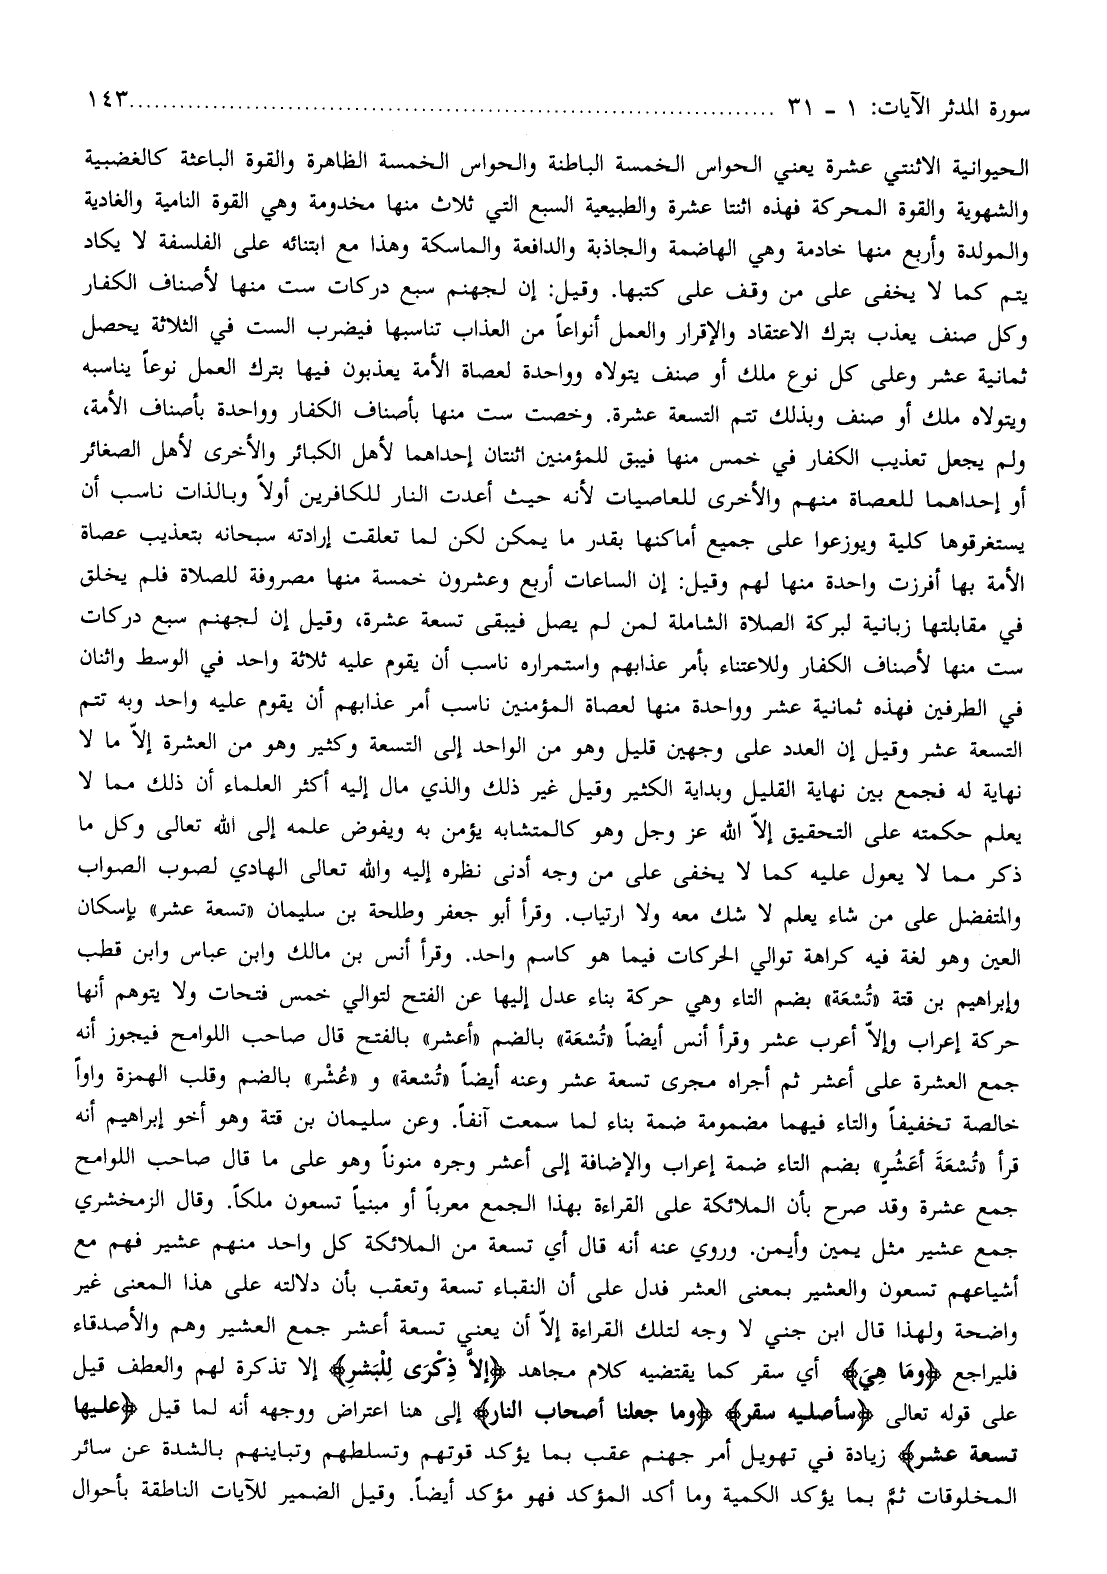 سورة المدثر الآيات: ١ - ٣١ ........................................................................... ١٤٣
الحيوانية الاثنتي عشرة يعني الحواس الخمسة الباطنة والحواس الخمسة الظاهرة والقوة الباعثة كالغضبية
والشهوية والقوة المحركة فهذه اثنتا عشرة والطبيعية السبع التي ثلاث منها مخدومة وهي القوة النامية والغادية
والمولدة وأربع منها خادمة وهي الهاضمة والجاذبة والدافعة والماسكة وهذا مع ابتنائه على الفلسفة لا يكاد
يتم كما لا يخفى على من وقف على كتبها. وقيل: إن لجهنم سبع دركات ست منها لأصناف الكفار
وكل صنف يعذب بترك الاعتقاد والإقرار والعمل أنواعاً من العذاب تناسبها فيضرب الست في الثلاثة يحصل
ثمانية عشر وعلى كل نوع ملك أو صنف يتولاه وواحدة لعصاة الأمة يعذبون فيها بترك العمل نوعاً يناسبه
ويتولاه ملك أو صنف وبذلك تتم التسعة عشرة. وخصت ست منها بأصناف الكفار وواحدة بأصناف الأمة،
ولم يجعل تعذيب الكفار في خمس منها فيبق للمؤمنين اثنتان إحداهما لأهل الكبائر والأخرى لأهل الصغائر
أو إحداهما للعصاة منهم والأخرى للعاصيات لأنه حيث أعدت النار للكافرين أولاً وبالذات ناسب أن
يستغرقوها كلية ويوزعوا على جميع أماكنها بقدر ما يمكن لكن لما تعلقت إرادته سبحانه بتعذيب عصاة
الأمة بها أفرزت واحدة منها لهم وقيل: إن الساعات أربع وعشرون خمسة منها مصروفة للصلاة فلم يخلق
في مقابلتها زبانية لبركة الصلاة الشاملة لمن لم يصل فيبقى تسعة عشرة، وقيل إن لجهنم سبع دركات
ست منها لأصناف الكفار وللاعتناء بأمر عذابهم واستمراره ناسب أن يقوم عليه ثلاثة واحد في الوسط واثنان
في الطرفين فهذه ثمانية عشر وواحدة منها لعصاة المؤمنين ناسب أمر عذابهم أن يقوم عليه واحد وبه تتم
التسعة عشر وقيل إن العدد على وجهين قليل وهو من الواحد إلى التسعة وكثير وهو من العشرة إلاّ ما لا
نهاية له فجمع بين نهاية القليل وبداية الكثير وقيل غير ذلك والذي مال إليه أكثر العلماء أن ذلك مما لا
يعلم حكمته على التحقيق إلاّ الله عز وجل وهو كالمتشابه يؤمن به ويفوض علمه إلى الله تعالى وكل ما
ذكر مما لا يعول عليه كما لا يخفى على من وجه أدنى نظره إليه والله تعالى الهادي لصوب الصواب
والمتفضل على من شاء يعلم لا شك معه ولا ارتياب. وقرأ أبو جعفر وطلحة بن سليمان «تسعة عشر» بإسكان
العين وهو لغة فيه كراهة توالي الحركات فيما هو كاسم واحد. وقرأ أنس بن مالك وابن عباس وابن قطب
وإبراهيم بن قتة «تُسْعَة» بضم التاء وهي حركة بناء عدل إليها عن الفتح لتوالي خمس فتحات ولا يتوهم أنها
حركة إعراب وإلاّ أعرب عشر وقرأ أنس أيضاً «تُسْعَة» بالضم «أعشر» بالفتح قال صاحب اللوامح فيجوز أنه
جمع العشرة على أعشر ثم أجراه مجرى تسعة عشر وعنه أيضاً «تُسْعة» و «عُشْر» بالضم وقلب الهمزة واواً
خالصة تخفيفاً والتاء فيهما مضمومة ضمة بناء لما سمعت آنفاً. وعن سليمان بن قتة وهو أخو إبراهيم أنه
قرأ «تُسْعَةَ أعَشُرٍ» بضم التاء ضمة إعراب والإضافة إلى أعشر وجره منوناً وهو على ما قال صاحب اللوامح
جمع عشرة وقد صرح بأن الملائكة على القراءة بهذا الجمع معرباً أو مبنياً تسعون ملكاً. وقال الزمخشري
جمع عشير مثل يمين وأيمن. وروي عنه أنه قال أي تسعة من الملائكة كل واحد منهم عشير فهم مع
أشياعهم تسعون والعشير بمعنى العشر فدل على أن النقباء تسعة وتعقب بأن دلالته على هذا المعنى غير
واضحة ولهذا قال ابن جني لا وجه لتلك القراءة إلاّ أن يعني تسعة أعشر جمع العشير وهم والأصدقاء
فليراجع ﴿وَمَا هِيَ﴾ أي سقر كما يقتضيه كلام مجاهد ﴿إلاَّ ذِكْرَى لِلْبَشرِ﴾ إلا تذكرة لهم والعطف قيل
على قوله تعالى ﴿سأصليه سقر﴾ ﴿وما جعلنا أصحاب النار﴾ إلى هنا اعتراض ووجهه أنه لما قيل ﴿عليها
تسعة عشر﴾ زيادة في تهويل أمر جهنم عقب بما يؤكد قوتهم وتسلطهم وتباينهم بالشدة عن سائر
المخلوقات ثمَّ بما يؤكد الكمية وما أكد المؤكد فهو مؤكد أيضاً. وقيل الضمير للآيات الناطقة بأحوال